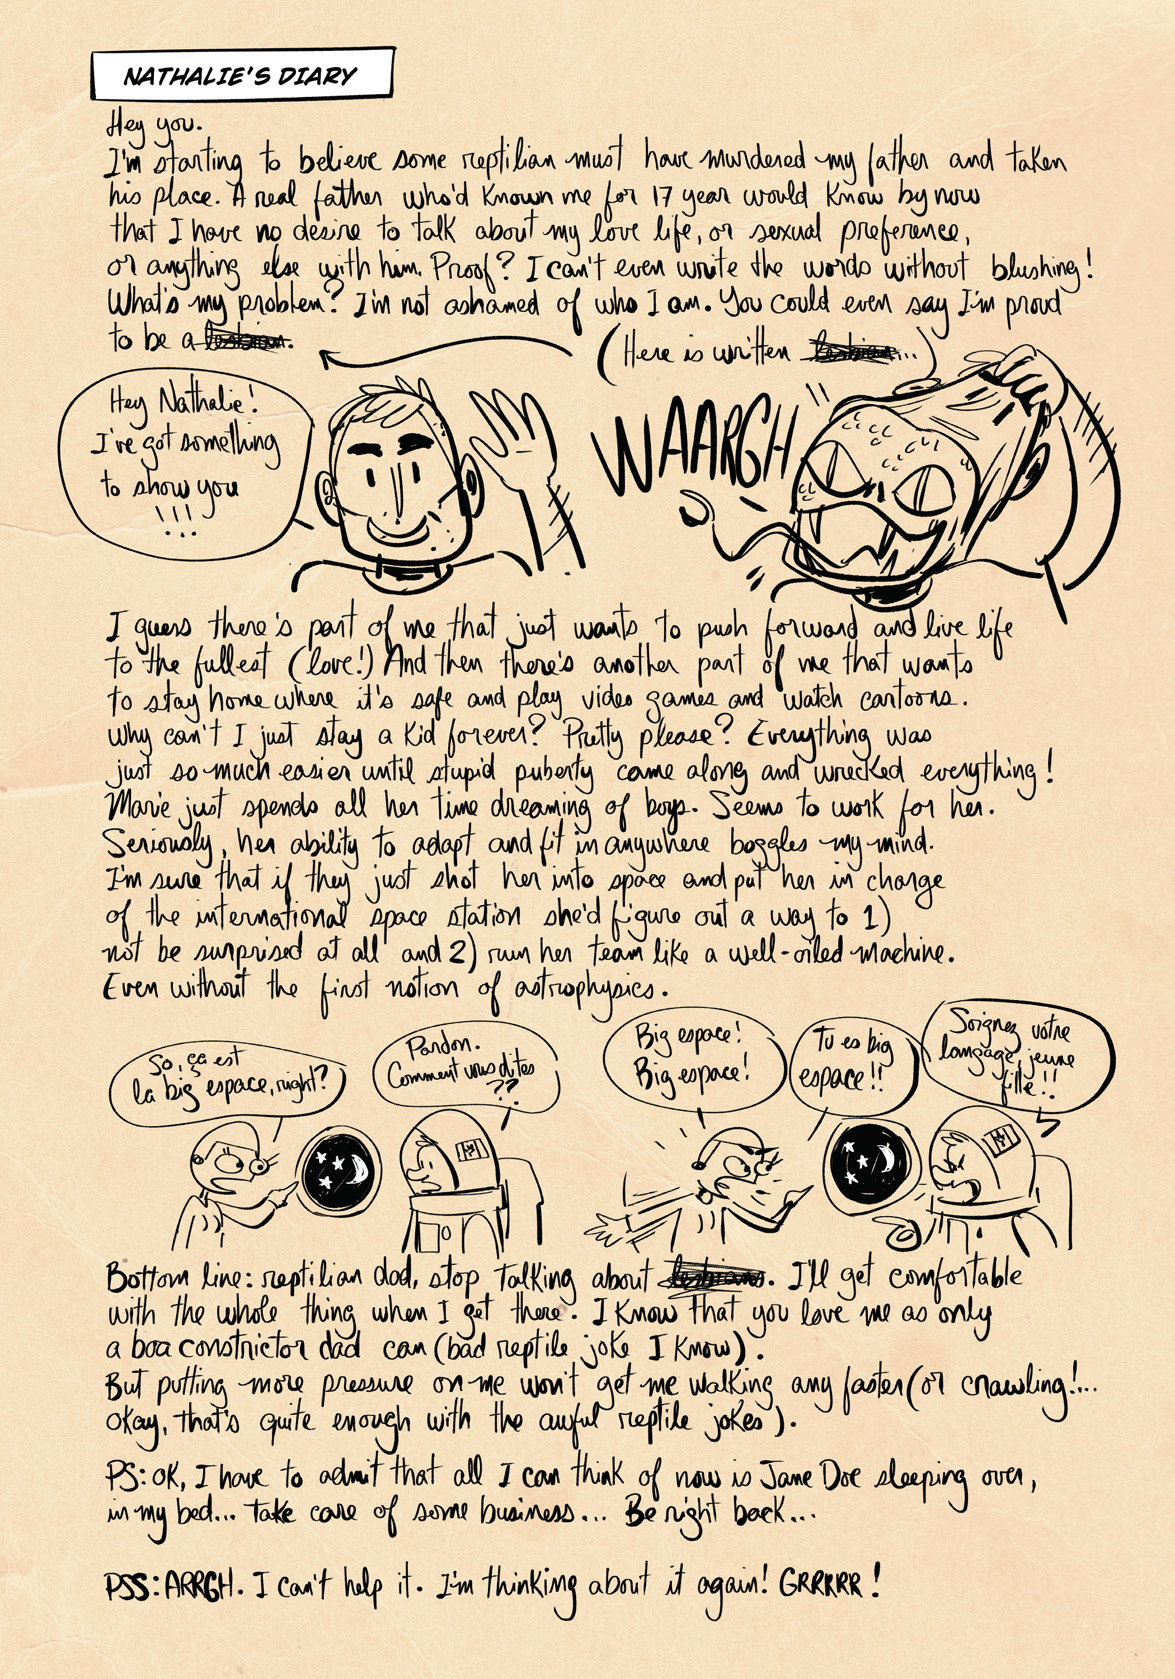 NATHALIE'S DIARY
Hey you.
I'm starting to believe some reptilian must have murdered my father and taken
his place. A real father who'd known me for 17 year would know by now
that I have no desire to talk about my love life, or sexual preference,
or anything else with him. Proof? I can't even write the words without blushing!
What's my problem? I'm not ashamed of who I am. You could even say I'm proud
to be a lesbian.
(Here is written lesbian...)
Hey Nathalie!
I've got something
to show you
!!!
WAARGH
I guess there's part of me that just wants to push forward and live life
to the fullest (love!) And then there's another part of me that wants
to stay home where it's safe and play video games and watch cartoons.
Why can't I just stay a kid forever? Pretty please? Everything was
just so much easier until stupid puberty came along and wrecked everything!
Marie just spends all her time dreaming of boys. Seems to work for her.
Seriously, her ability to adapt and fit in anywhere boggles my mind.
I'm sure that if they just shot her into space and put her in charge
of the international space station she'd figure out a way to 1)
not be surprised at all and 2) run her team like a well-oiled machine.
Even without the first notion of astrophysics.
So, ça est
la big espace, right?
Pardon.
Comment vous dites
??
Big espace!
Big espace!
Tu es big
espace!!
Soignez votre
langage, jeune
fille!!
Bottom line: reptilian dad, stop talking about lesbians. I'll get comfortable
with the whole thing when I get there. I know that you love me as only
a boa constrictor dad can (bad reptile joke I know).
But putting more pressure on me won't get me walking any faster (or crawling!...
Okay, that's quite enough with the awful reptile jokes).
PS: OK, I have to admit that all I can think of now is Jane Doe sleeping over,
in my bed... Take care of some business... Be right back...
PSS: ARRGH. I can't help it. I'm thinking about it again! GRRRRR!